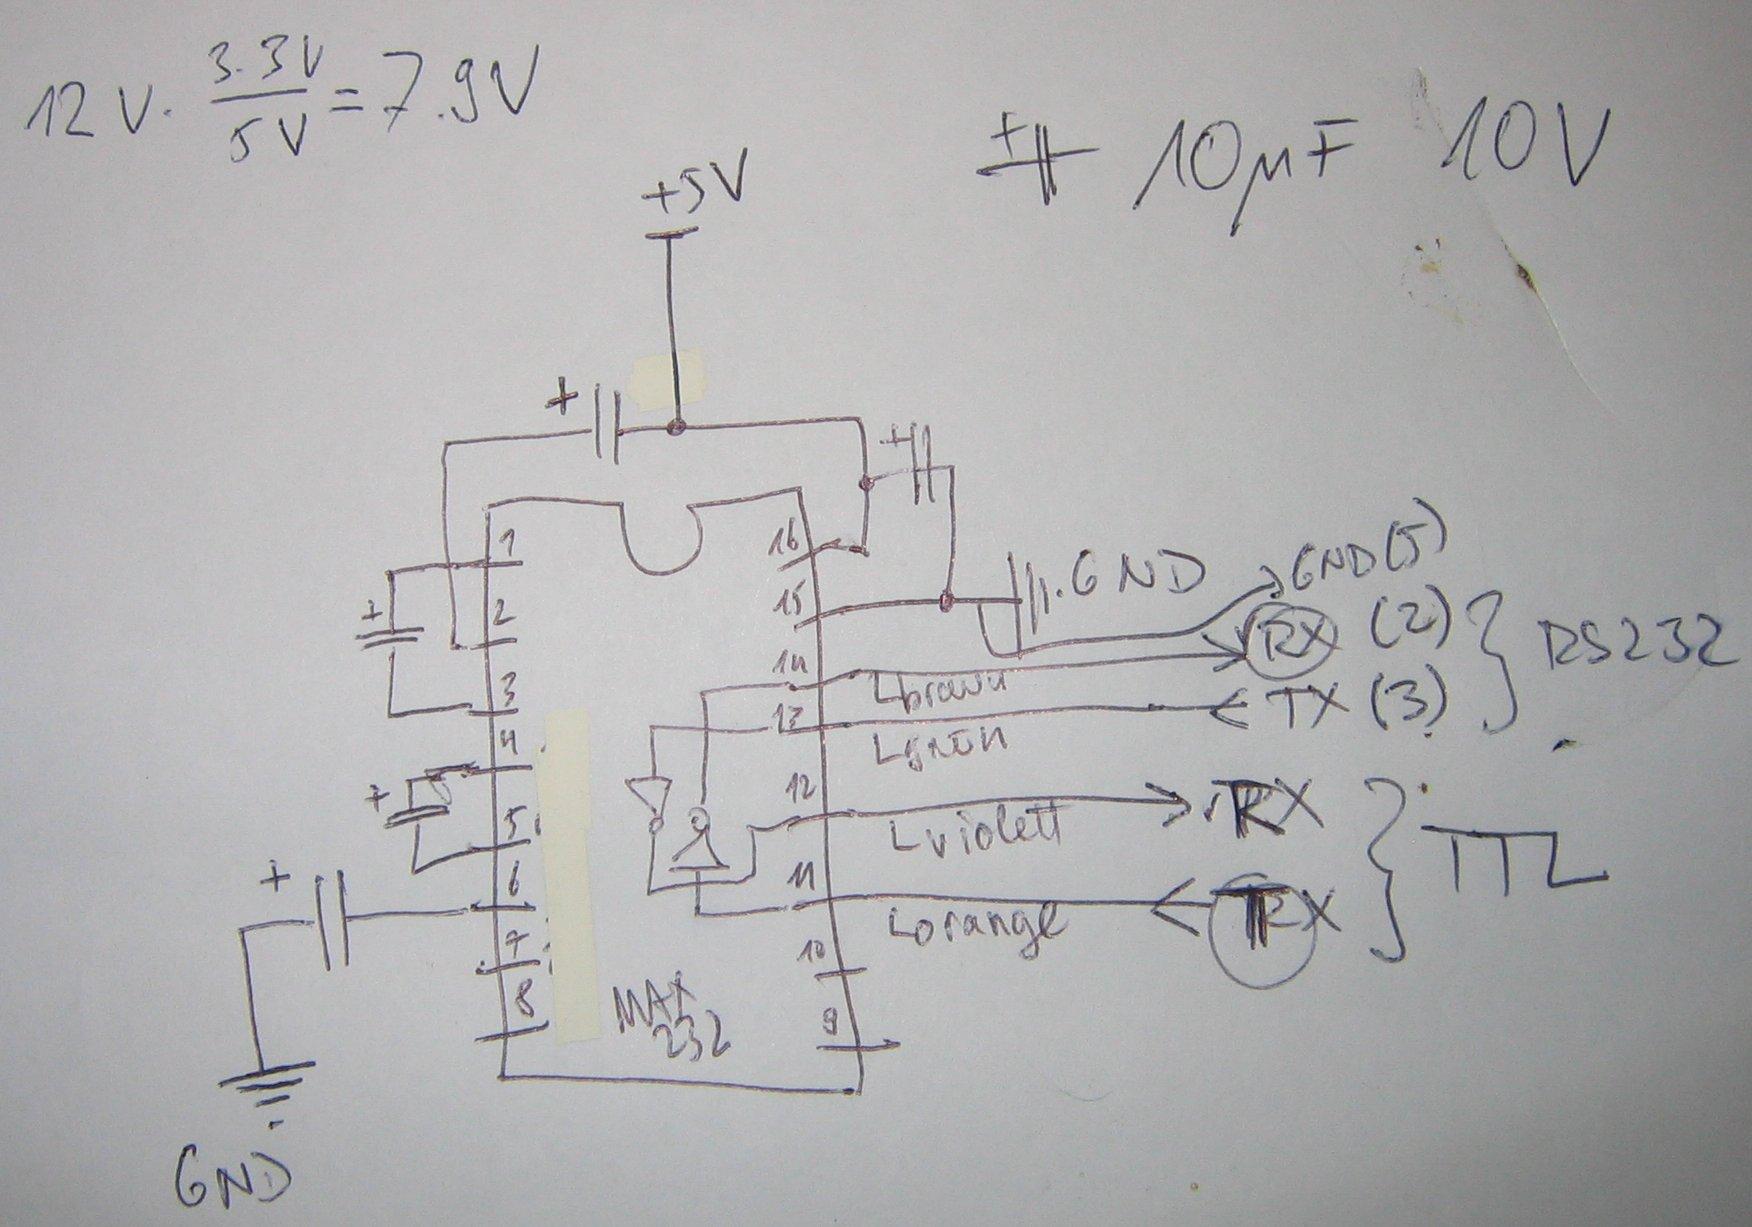 12V · 3.3V / 5V = 7.9V
+ 10µF 10V
+5V
+
+
1
16
2
15
GND
GND(5)
+
RX (2)
RS232
3
14
braun
TX (3)
4
13
grün
+
12
RX
5
violett
TTL
+
6
11
TX
orange
7
10
8
MAX
232
9
GND